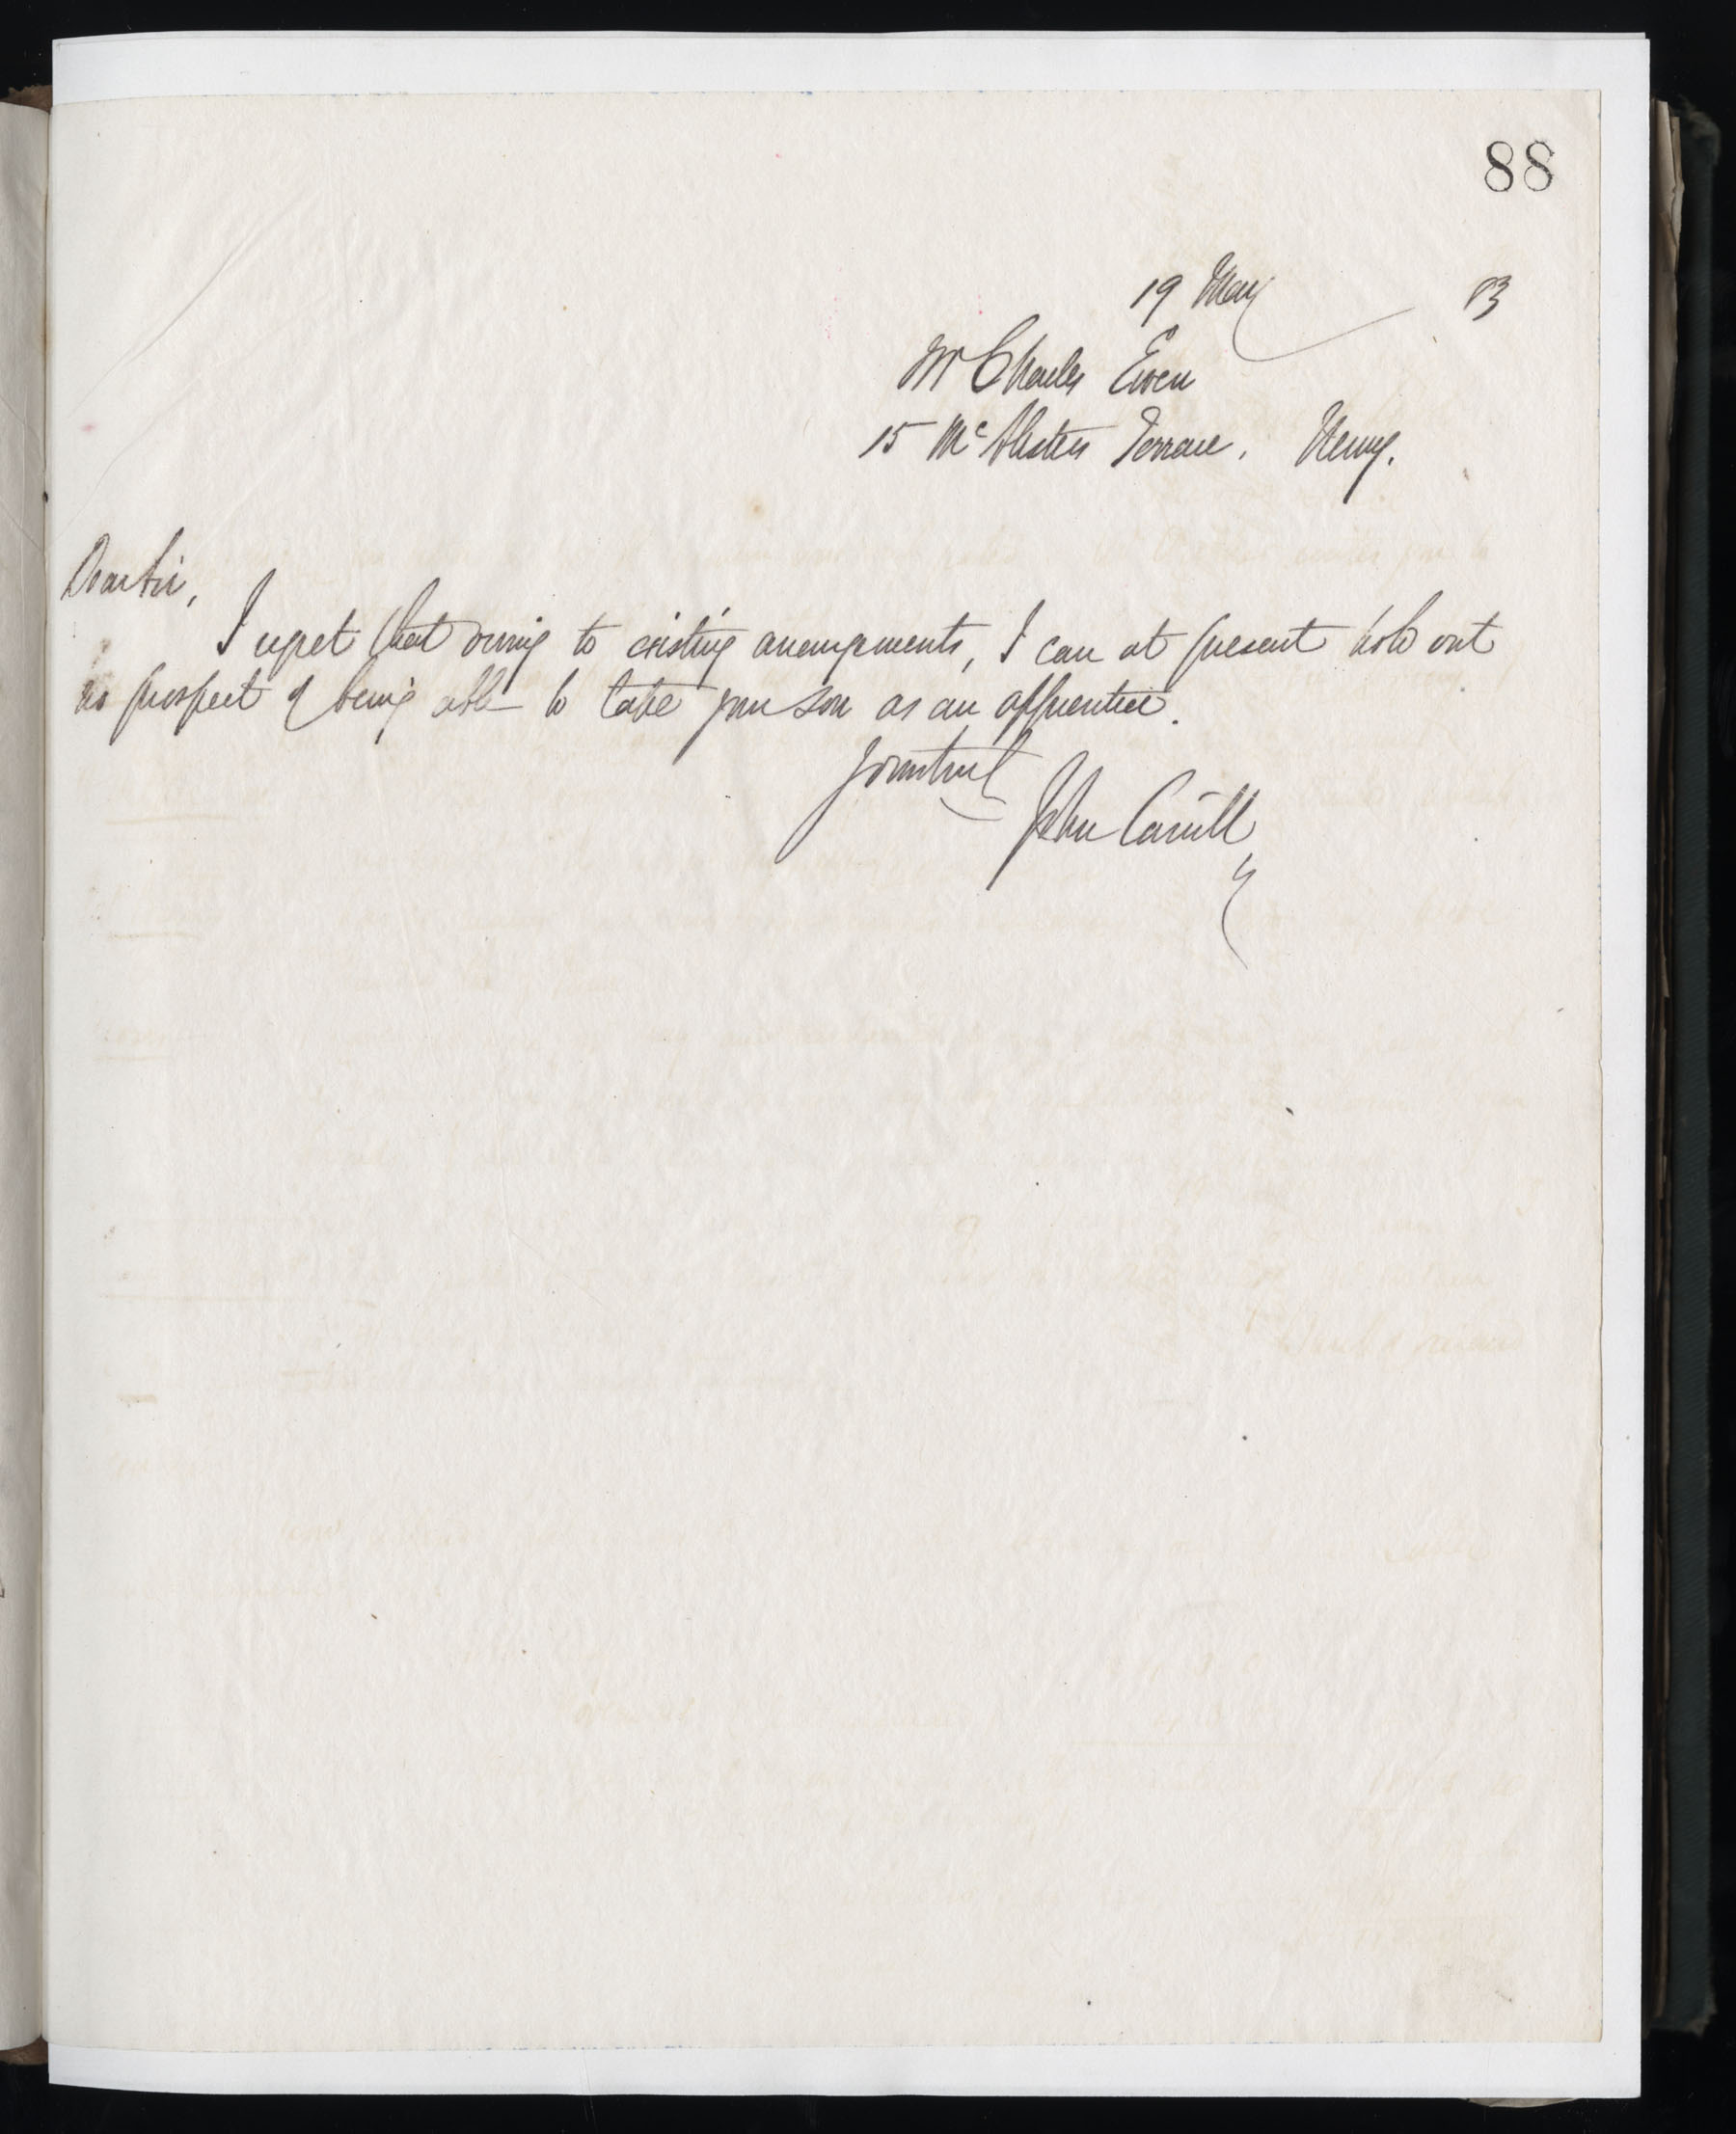 88
19 May 83
Mr Charles Ewen
15 McAlister Terrace, Newry.
Dear Sir,
I regret that owing to existing arrangements, I can at present hold out
no prospect of being able to take your son as an apprentice.
Yours truly
John Carvill